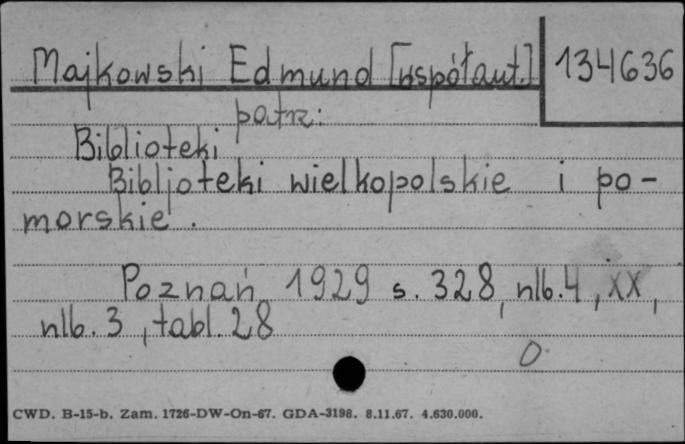 Majkowski Edmund [współaut.] 134636
patrz:
Biblioteki
Bibljoteki wielkopolskie i po-
morskie.
Poznań 1929 s. 328, nlb. 4, XX,
nlb. 3, tabl. 28
O
CWD. B-15-b. Zam. 1726-DW-On-67. GDA-3198. 8.11.67. 4.630.000.